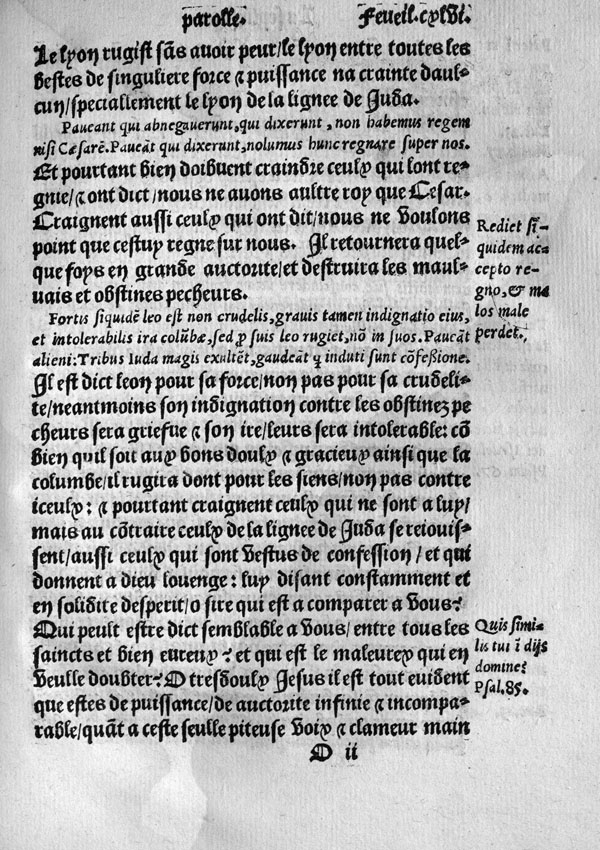 parolle. Feueil. cxlvi.
Le lyon rugist sãs auoir peur/le lyon entre toutes les
bestes de singuliere force & puissance na crainte daul-
cun/speciallement le lyon de la lignee de Juda.
Paueant qui abnegauerunt, qui dixerunt, non habemus regem
nisi Cæsarẽ. Paueãt qui dixerunt, nolumus hunc regnare super nos.
Et pourtant bien doibuent craindre ceulx qui lont re-
gnie/& ont dict/nous ne auons aultre roy que Cesar.
Craignent aussi ceulx qui ont dit/nous ne voulons
point que cestuy regne sur nous. Il retournera quel-
que foys en grande auctorite/et destruira les maul-
uais et obstines pecheurs.
Rediet si-
quidem ac
cepto re-
gno, & ma
los male
perdet.
Fortis siquidẽ leo est non crudelis, grauis tamen indignatio eius,
et intolerabilis ira colũbæ, sed p suis leo rugiet, nõ in suos. Paueãt
alieni: Tribus Iuda magis exultẽt, gaudeãt q induti sunt cõfeßione.
Il est dict leon pour sa force/non pas pour sa crudeli-
te/neantmoins son indignation contre les obstinez pe
cheurs sera griefue & son ire/leurs sera intolerable: cõ
bien quil soit aux bons doulx & gracieux ainsi que la
columbe/il rugira dont pour les siens/non pas contre
iceulx: & pourtant craignent ceulx qui ne sont a luy/
mais au cõtraire ceulx de la lignee de Juda se reiouis-
sent/aussi ceulx qui sont vestus de confession/et qui
donnent a dieu louenge: luy disant constamment et
en solidite desperit/o sire qui est a comparer a vous?
Qui peult estre dict semblable a vous/entre tous les
saincts et bien eureux? et qui est le maleurex qui en
veulle doubter? O tresdoulx Jesus il est tout euident
que estes de puissance/de auctorite infinie & incompa-
rable/quãt a ceste seulle piteuse voix & clameur main
Quis simi-
lis tui ĩ dijs
domine?
Psal. 85.
O ii